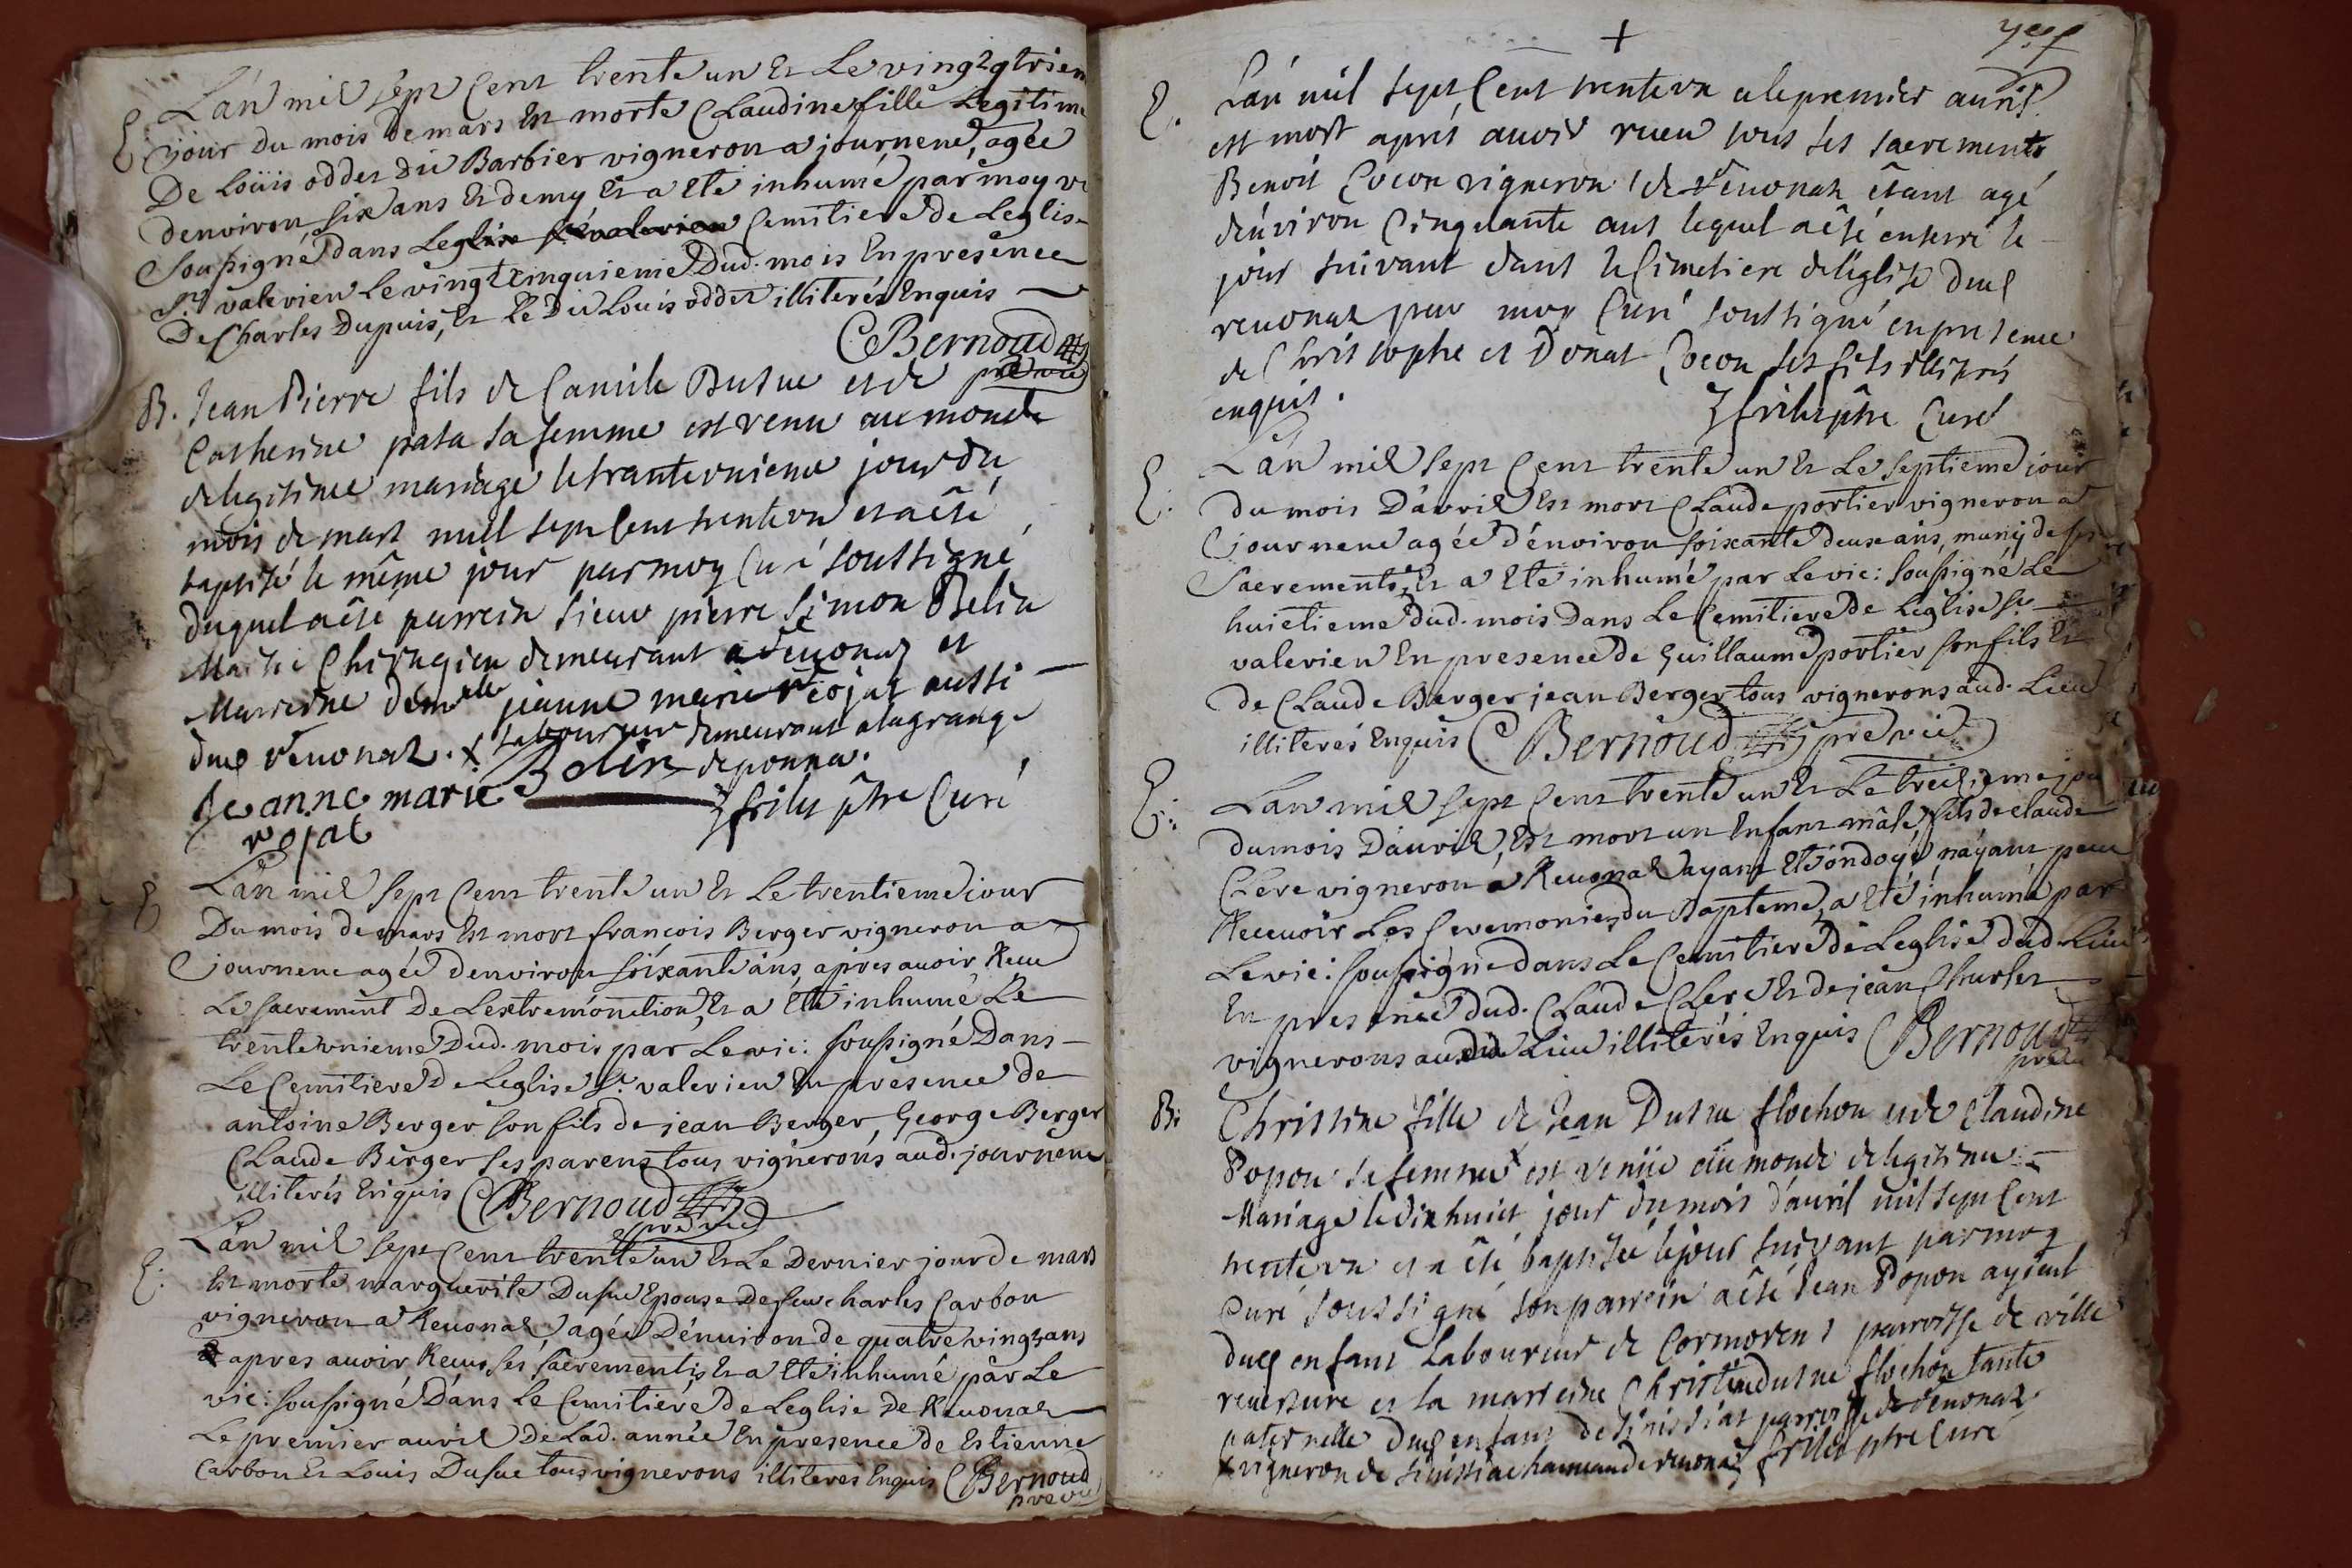 L'an mil sept Cent trente un Et Le vingt qtriem
E: jour Du mois de mars Est morte Claudine fille Legitime
De Loüis oddet dit Barbier vigneron a journene, agée
denviron six ans Et demy Et a Eté inhumé par moy vi
soußigné dans Leglise st valerien Cemitiere de Leglis
st valerien Le vingt cinquieme Dud. mois En presence
De Charles Dupuis, Et Le Du Louis oddet illiterés Enquis
Bernoud
pre vic
B. Jean Pierre fils de Camile Dusue et de
Catherine pata sa femme est venu au monde
de legitime mariage le tranteunieme jour du
mois de mars mill sept Cent trente vn et a êté
baptisé le même jour par moy Curé soussigné
duquel a êté parrein sieur pierre simon Belin
Maitre Chirugien demeurant a revonaz et
Marreine demelle jeanne marie rojat aussi
dud revonaz. x Laboureur demeurant a la grange
de ponna.
Belin
jeanne marie
rojat
frilet ptre Curé
E L'an mil sept Cent trente un Et Le trentieme jour
Du mois de mars Est mort françois Berger vigneron a
journene agée d'environ soixante ans, apres avoir Receu
Le sacrement De Lextremonction, Et a Eté inhumé Le
trentevnieme Dud. mois par Le vic: soußigné Dans
Le Cemitiere de Leglise St. valerien En presence de
antoine Berger son fils de jean Berger, George Berger
Claude Berger ses parens tous vignerons aud. journene
illiterés Enquis Bernoud
pre vic
L'an mil sept Cent trente un Et Le Dernier jour de mars
E: Est morte marguerite Dusue Epouse De feu charles Carbon
vigneron a Revonaz, agée D'environ de quatre vingt ans
apres avoir Receus ses sacrements, Et a Eté inhumé par Le
vic: soußigné Dans Le Cemitiere de Leglise de Revonaz
Le premier avril De Lad. année En presence de Estienne
Carbon Et Louis Dusue tous vignerons illiteres Enquis Bernoud
pre vic
+
E. L'an mil sept Cent trente vn et le premier avril
est mort aprés avoir receu tous ses sacrements
Benoit Cocon vigneron de revonaz êtant agé
d'environ Cinquante ans lequel a êté enterré le
jour suivant dans le Cimetiere de leglise dud
revonaz par moy Curé soussigné en presence
de Christophe et Donat Cocon ses fils illitrés
enquis.
frilet ptre Curé
E: L'an mil sept Cent trente un Et Le septieme jour
du mois D'avril Est mort Claude portier vigneron a
journene agée d'environ soixante deux ans, muny de ses
sacrements, Et a Eté inhumé par Le vic: soußigné Le
huictieme Dud. mois Dans Le Cemitiere de Leglise St
valerien En presence de Guillaume portier son fils Et
de Claude Berger jean Berger tous vignerons aud. Lieu
illiterés Enquis Bernoud pre vic
E: L'an mil sept Cent trente un Et Le treizieme jou
du mois D'avril, Est mort un Enfant mâle, fils de claude
Clerc vigneron a Revonaz ayant Eté ondoyé n'ayant peu
Recevoir Les Ceremonies du Bapteme, a Eté inhumé par
Le vic: soußigné dans Le Cemitiere de Leglise dud. Lieu
En presence dud. Claude Clerc Et de jean Charles
vignerons audit Lieu illiterés Enquis Bernoud
pre vic
B: Christine fille de Jean Dusue flochon et de Claudine
Popon sa femme x est venüe au monde de legitime
Mariage le dix huict jour du mois d'avril mil sept Cent
trente vn et a êté baptisée le jour suivant par moy
Curé soussigné son parrein a êté Jean Popon ayeul
dud enfant Laboureur de Cormoren parroisse de ville
reversure et la marreine Christin dusue flochon tante
paternelle dud enfant de sinissiat parroisse de revonaz
x vigneron de sinissiac hameau de revonaz frilet ptre Curé